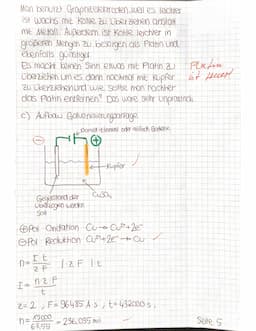 Man benutzt Graphitelektroden, weil es leichter
ist Wachs mit Kohle zu überziehen anstatt
mit Metall. Außerdem ist Kohle leichter in
größeren Mengen zu besorgen als Platin und
ebenfalls günstiger.
Es macht keinen Sinn etwas mit Platin zu
überziehen um es dann nochmal mit Kupfer
zu überziehen und wie sollte man nachher
das Platin entfernen? Das wäre sehr unpraktisch.
Platin
ist teuer!
c) Aufbau Galvanisierungsanlage
Donut-Element oder einfach Batterie
⊖ ⊕
Kupfer
CuSO₄
Gegenstand der
überzogen werden
soll
⊕Pol: Oxidation Cu → Cu²⁺ + 2e⁻
⊖Pol: Reduktion Cu²⁺ + 2e⁻ → Cu ✓
n = I·t / z·F | · z·F | : t
I = n·z·F / t
z = 2 , F = 96485 A s , t = 432000 s ,
n = 15000 / 63,55 = 236,035 mol
Seite 5